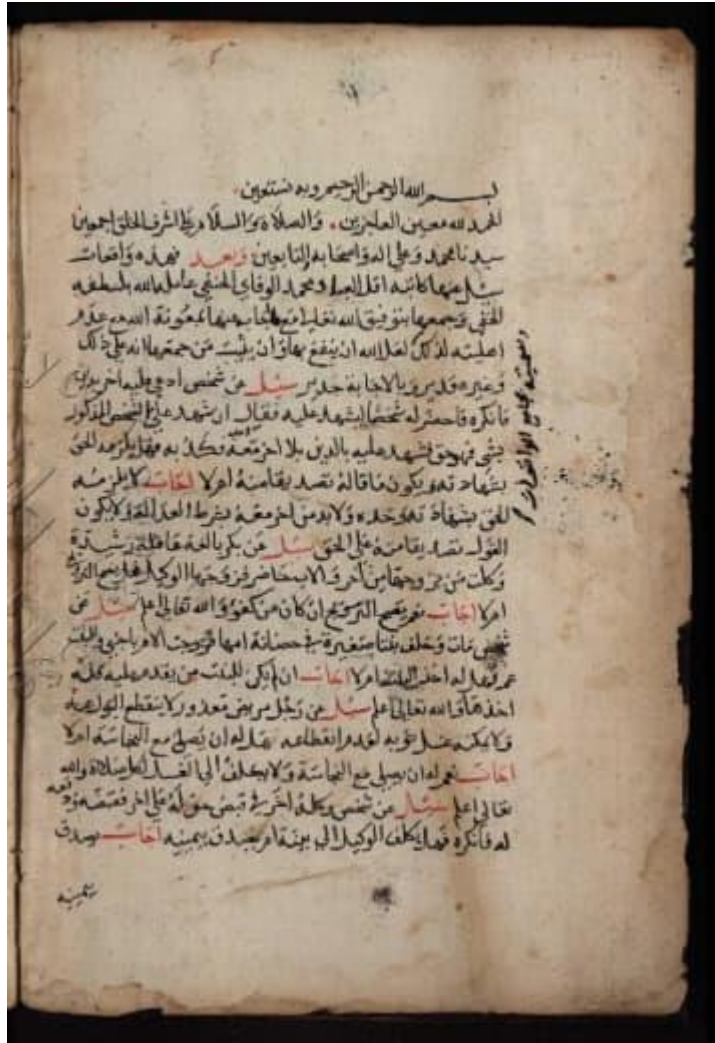 بسم الله الرحمن الرحيم وبه نستعين
الحمد لله معين العاجزين والصلاة والسلام على اشرف الخلق اجمعين
سيدنا محمد وعلى اله واصحابه والتابعين وبعد فهذه واقعات
سئل عنها كاتبه اقل العباد محمد الوفاي الحنفي عامله الله بلطفه
الخفي وجمعها بتوفيق الله تعالى مع ما اجاب عنها بمعونة الله مع عدم
اهليته لذلك لعل الله ان ينفع بها وان يثيب من جمعها انه على ذلك
وغيره قدير وبالاجابة جدير سئل عن شخص ادعى عليه اخر بدين
فانكره فاحضر له شخصا ليشهد عليه فقال ان شهد علي الشخص المذكور
بشي فهو حق فشهد عليه بالدين بلا اخر معه فكذبه فهل يلزمه الحق
بشهادته وحده ويكون ما قاله تصديقا منه ام لا اجاب لا يلزمه
الحق بشهادته وحده ولا بد من اخر معه بشرط العدالة ولا يكون
القول تصديقا منه على الحق سئل عن بكر بالغة عاقلة رشيدة
وكلت من يزوجها من اخر والاب حاضر فزوجها الوكيل هل يصح التزويج
ام لا اجاب نعم يصح التزويج ان كان من كفؤ والله تعالى اعلم سئل عن
شخص مات وخلف بنتا صغيرة في حضانة امها تزوجت الام باجنبي وللبنت
عم فهل له اخذ البنت ام لا اجاب ان لم يكن للبنت من يقدم عليه فله
اخذها والله تعالى اعلم سئل عن رجل مريض معذور لا ينقطع البول عنه
ولا يمكنه غسل ثوبه لعدم انقطاعه هل له ان يصلي مع النجاسة ام لا
اجاب نعم له ان يصلي مع النجاسة ولا يكلف الى الغسل لكل صلاة والله
تعالى اعلم سئل عن شخص وكله اخر في قبض حق له على اخر فقبضه ودفعه
له فانكره فهل يكلف الوكيل الى بينة ام يصدق بيمينه اجاب يصدق
بيمينه